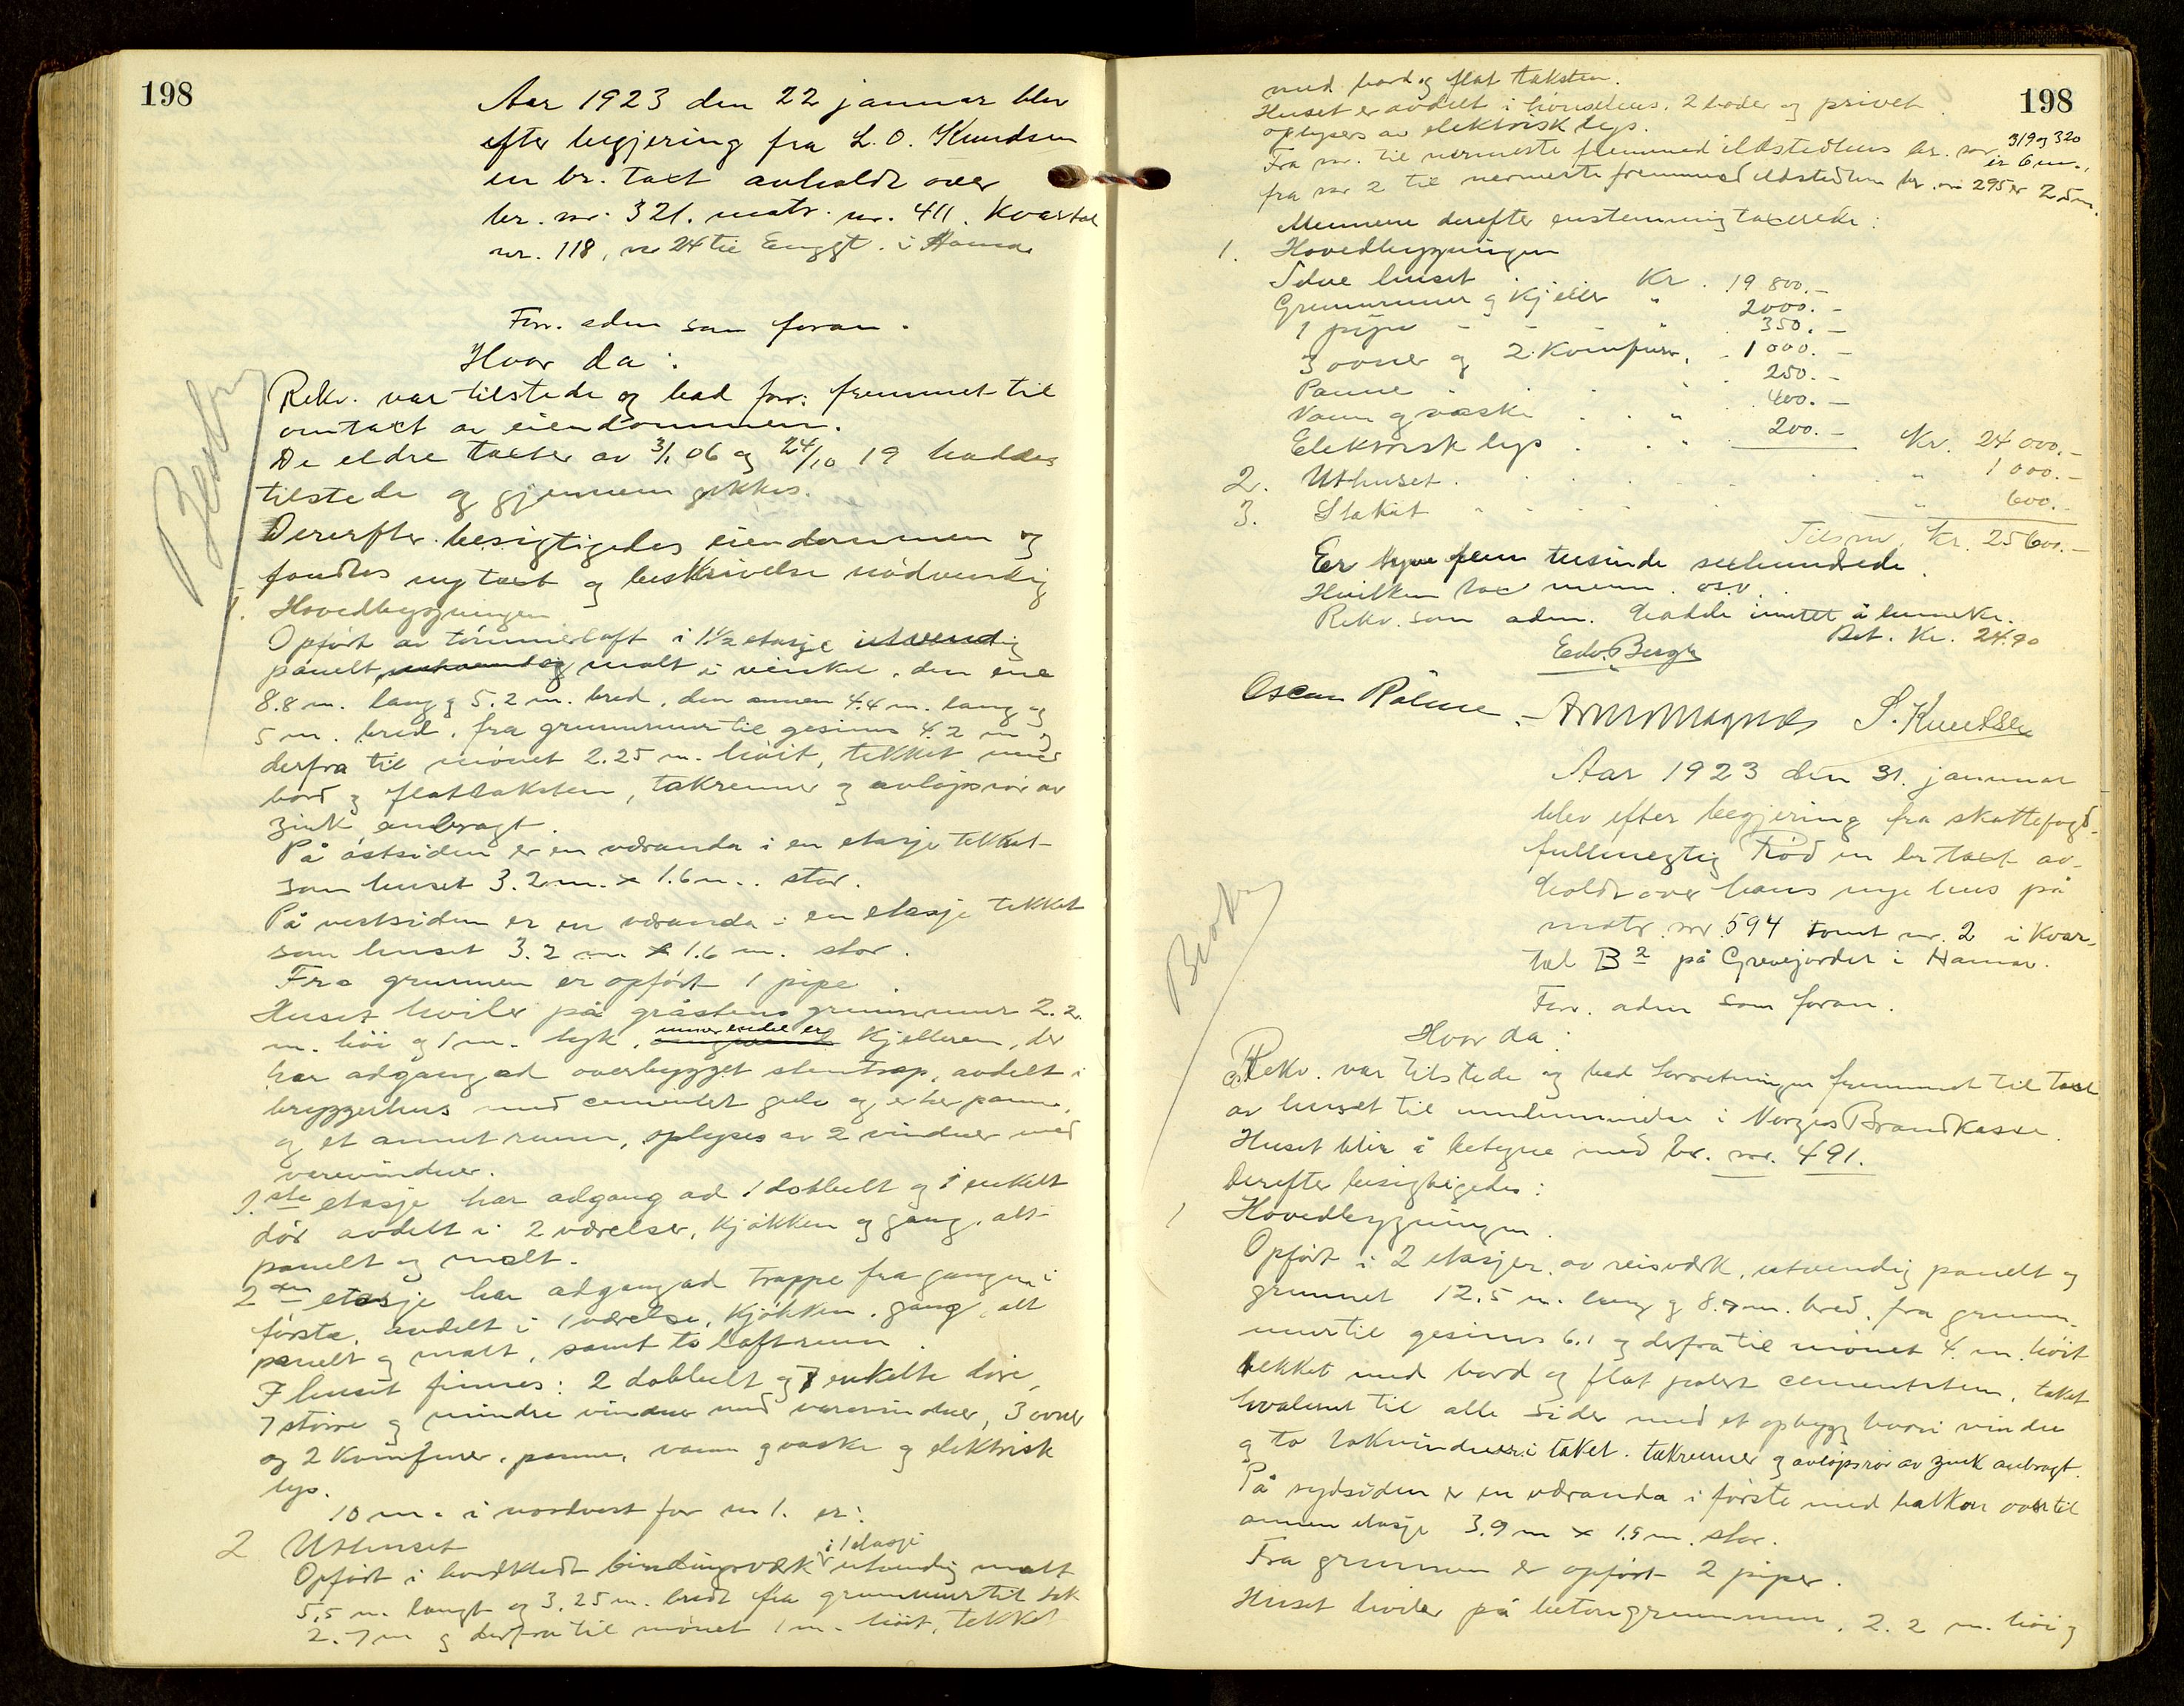 198
Aar 1923 den 22 januar blev
efter begjering fra L. O. Knudsen
en br. taxt avholdt over
br. nr. 321. matr. nr. 411. Kvartal
nr. 118, nr 24 til Enggt. i Hamar
Forr. adm som foran.
Hvor da:
Rekv. var tilstede og bad forr. fremmet til
omtaxt av eiendommen.
De eldre taxter av 3/1 06 og 24/10 19 haddes
tilstede og gjennemgikkes.
Derefter besigtigedes eiendommen og
fandtes ny taxt og beskrivelse nødvendig
1. Hovedbygningen
Opført av tømmerloft i 1 1/2 etasje utvendig
panelt, malt i vinkel, den ene
8.8 m. lang og 5.2 m. bred, den annen 4.4 m. lang og
5 m. bred, fra grunnmur til gesims 4.2 m og
derfra til mønet 2.25 m. høit, tekket med
bord og flattaksten, takrenner og avløpsrør av
zink anbragt.
På østsiden er en veranda i en etasje tekket
som huset 3.2 m. x 1.6 m. stor.
På vestsiden er en veranda i en etasje tekket
som huset 3.2 m. x 1.6 m. stor.
Fra grunnen er opført 1 pipe.
Huset hviler på gråstens grunnmur 2.2
m. høi og 1 m. tyk, unner endel er kjelleren, der
har adgang ad overbygget stentrap, avdelt i
bryggerhus med cementet gulv og er her panne,
og et annet rum, oplyses av 2 vinduer med
varevinduer.
1ste etasje har adgang ad 1 dobbelt og 1 enkelt
dør avdelt i 2 værelser, kjøkken og gang, alt
panelt og malt.
2den etasje har adgang ad trappe fra gangen i
første, avdelt i 1 værelse, kjøkken, gang, alt
panelt og malt, samt to loftsrum.
I huset finnes: 2 dobbelt og 7 enkelte døre,
7 større og mindre vinduer med varevinduer, 3 ovner
og 2 komfurer, panne, vann og vaske og elektrisk
lys.
10 m. i nordvest for nr 1. er:
2 Uthuset
Opført i bordklædt bindingsværk i 1 etasje utvendig malt
5,5 m. langt og 3.25 m. bredt fra grunnmur til tak
2.7 m og derfra til mønet 1 m. høit, tekket
198
med bord og flat taksten.
Huset er avdelt i hønsehus, 2 boder og privet
oplyses av elektrisk lys.
Fra nr. til nermeste fremmed ildstedhus br. nr. 319 og 320
er 6 m.,
fra nr 2 til nermeste fremmed ildstedhus br. nr 295 er 25 m.
Mennene derefter enstemmig taxerede:
1. Hovedbygningen
Selve huset Kr. 19 800.-
Grunnmur og kjeller " 2000.-
1 pipe " 350.-
3 ovner og 2 komfurer, 1 000.-
Panne 250.-
Vann og vaske " 400.-
Elektrisk lys " 200.- Kr. 24 000.-
2. Uthuset " 1 000.-
3. Stakit " 600.-
Tilsm. Kr. 25600.-
Er tyve fem tusinde sexhundrede.
Hvilken tax menn. osv.
Rekv. som adm. hadde inntet å bemerke.
Bet. Kr. 24.90
Edv. Bergh
Oscar Palme. Arne Magnus S. Knudsen
Aar 1923 den 31. januar
blev efter begjering fra skattefogd-
fullmegtig Frød en br. taxt av-
holdt over hans nye hus på
matr. nr. 594 tomt nr. 2 i Kvar-
tal B2 på Grevejordet i Hamar.
Forr. adm som foran.
Hvor da:
Rekv. var tilstede og bad forretningen fremmet til taxt
av huset til innlemmelse i Norges Brandkasse.
Huset blir å betegne med br. nr. 491.
Derefter besigtigedes:
1 Hovedbygningen.
Opført i 2 etasjer av reisværk, utvendig panelt og
grunnet 12.5 m. lang og 8.7 m. bred, fra grunn-
mur til gesims 6.1 og derfra til mønet 4. m. høit
tekket med bord og flat falset cementsten, taket
hvalmet til alle sider med et opbygg hvori vindu
og to takvinduer i taket. takrenner og avløpsrør av zink anbragt.
På sydsiden er en veranda i første med balkon over til
annen etasje 3.9 m x 1.5 m. stor.
Fra grunnen er opført 2 piper.
Huset hviler på betongrunnmur, 2.2 m. høi og